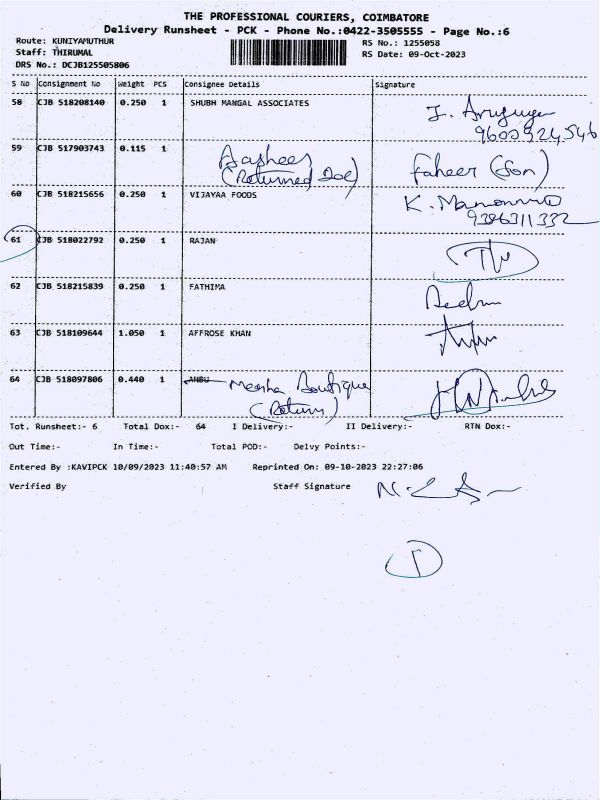 THE PROFESSIONAL COURIERS, COIMBATORE
Delivery Runsheet - PCK - Phone No.:0422-3505555 - Page No.:6
Route: KUNIYAMUTHUR RS No.: 1255058
Staff: THIRUMAL RS Date: 09-Oct-2023
DRS No.: DCJB125505806
S No Consignment No Weight PCS Consignee Details Signature
58 CJB 518208140 0.250 1 SHUBH MANGAL ASSOCIATES
9600924546
59 CJB 517903743 0.115 1 Faheer (Son)
(Returned
60 CJB 518215656 0.250 1 VIJAYAA FOODS K.
9386311332
61 CJB 518022792 0.250 1 RAJAN
62 CJB 518215839 0.250 1 FATHIMA
63 CJB 518109644 1.050 1 AFFROSE KHAN
64 CJB 518097806 0.440 1 ANBU Meesha Boutique
(Return)
Tot. Runsheet:- 6 Total Dox:- 64 I Delivery:- II Delivery:- RTN Dox:-
Out Time:- In Time:- Total POD:- Delvy Points:-
Entered By :KAVIPCK 10/09/2023 11:40:57 AM Reprinted On: 09-10-2023 22:27:06
Verified By Staff Signature